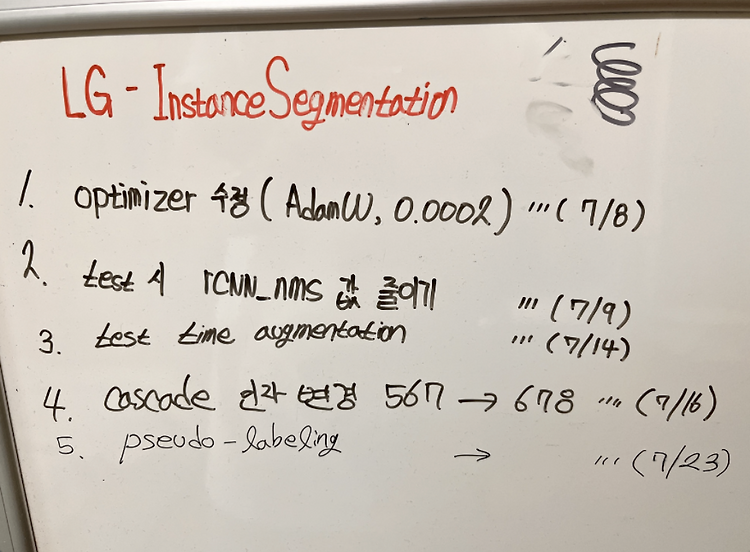 LG - Instance Segmentation
1. optimizer 수정 ( AdamW, 0.0002 ) ''' ( 7/8 )
2. test 시 rCNN_nms 값 줄이기 ''' ( 7/9 )
3. test time augmentation ''' ( 7/14 )
4. cascade 인자 변경 567 → 678 '''' ( 7/16 )
5. pseudo-labeling → ''' ( 7/23 )